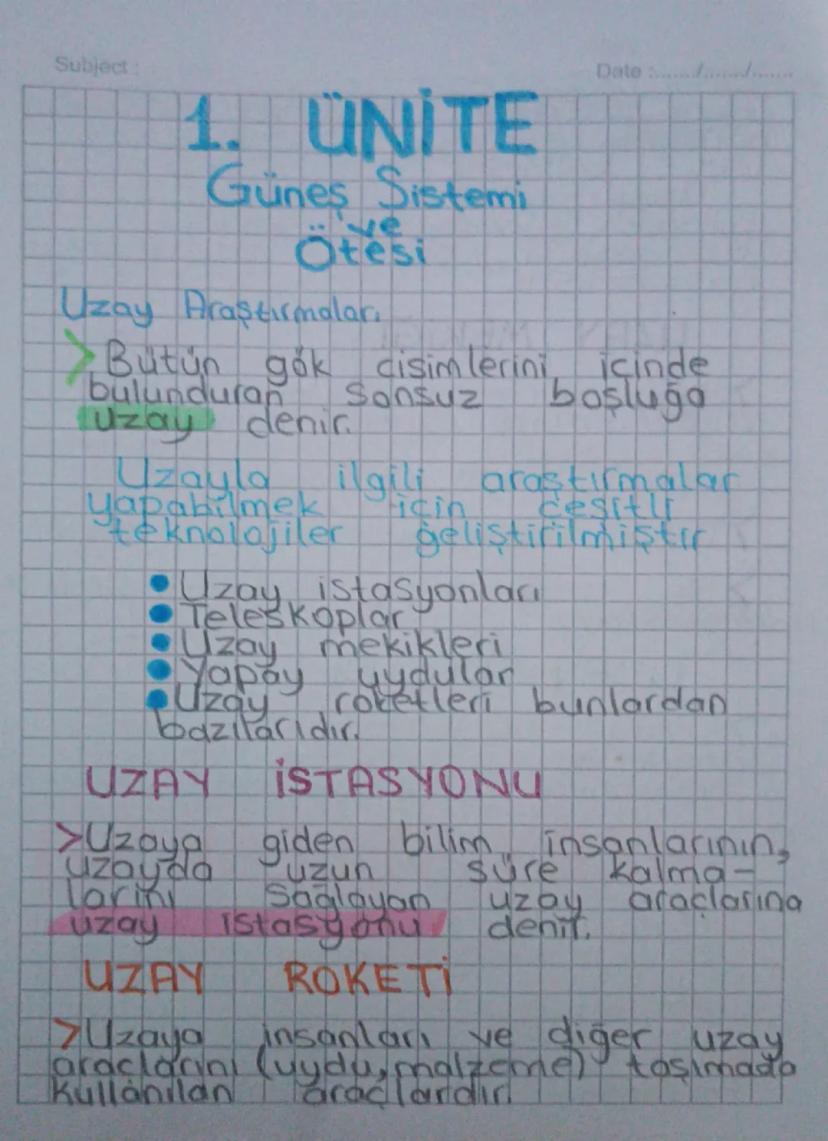 Subject :
Date :....../....../......
1. ÜNİTE
Güneş Sistemi
ve
Ötesi
Uzay Araştırmaları
>Bütün gök cisimlerini içinde
bulunduran sonsuz boşluğa
uzay denir.
Uzayla ilgili araştırmalar
yapabilmek için çeşitli
teknolojiler geliştirilmiştir
• Uzay istasyonları
• Teleskoplar
• Uzay mekikleri
• Yapay uydular
• Uzay roketleri bunlardan
bazılarıdır.
UZAY İSTASYONU
>Uzaya giden bilim insanlarının,
uzayda uzun süre kalma-
larını sağlayan uzay araçlarına
uzay istasyonu denir.
UZAY ROKETİ
>Uzaya insanları ve diğer uzay
araçlarını (uydu, malzeme) taşımada
kullanılan araçlardır.